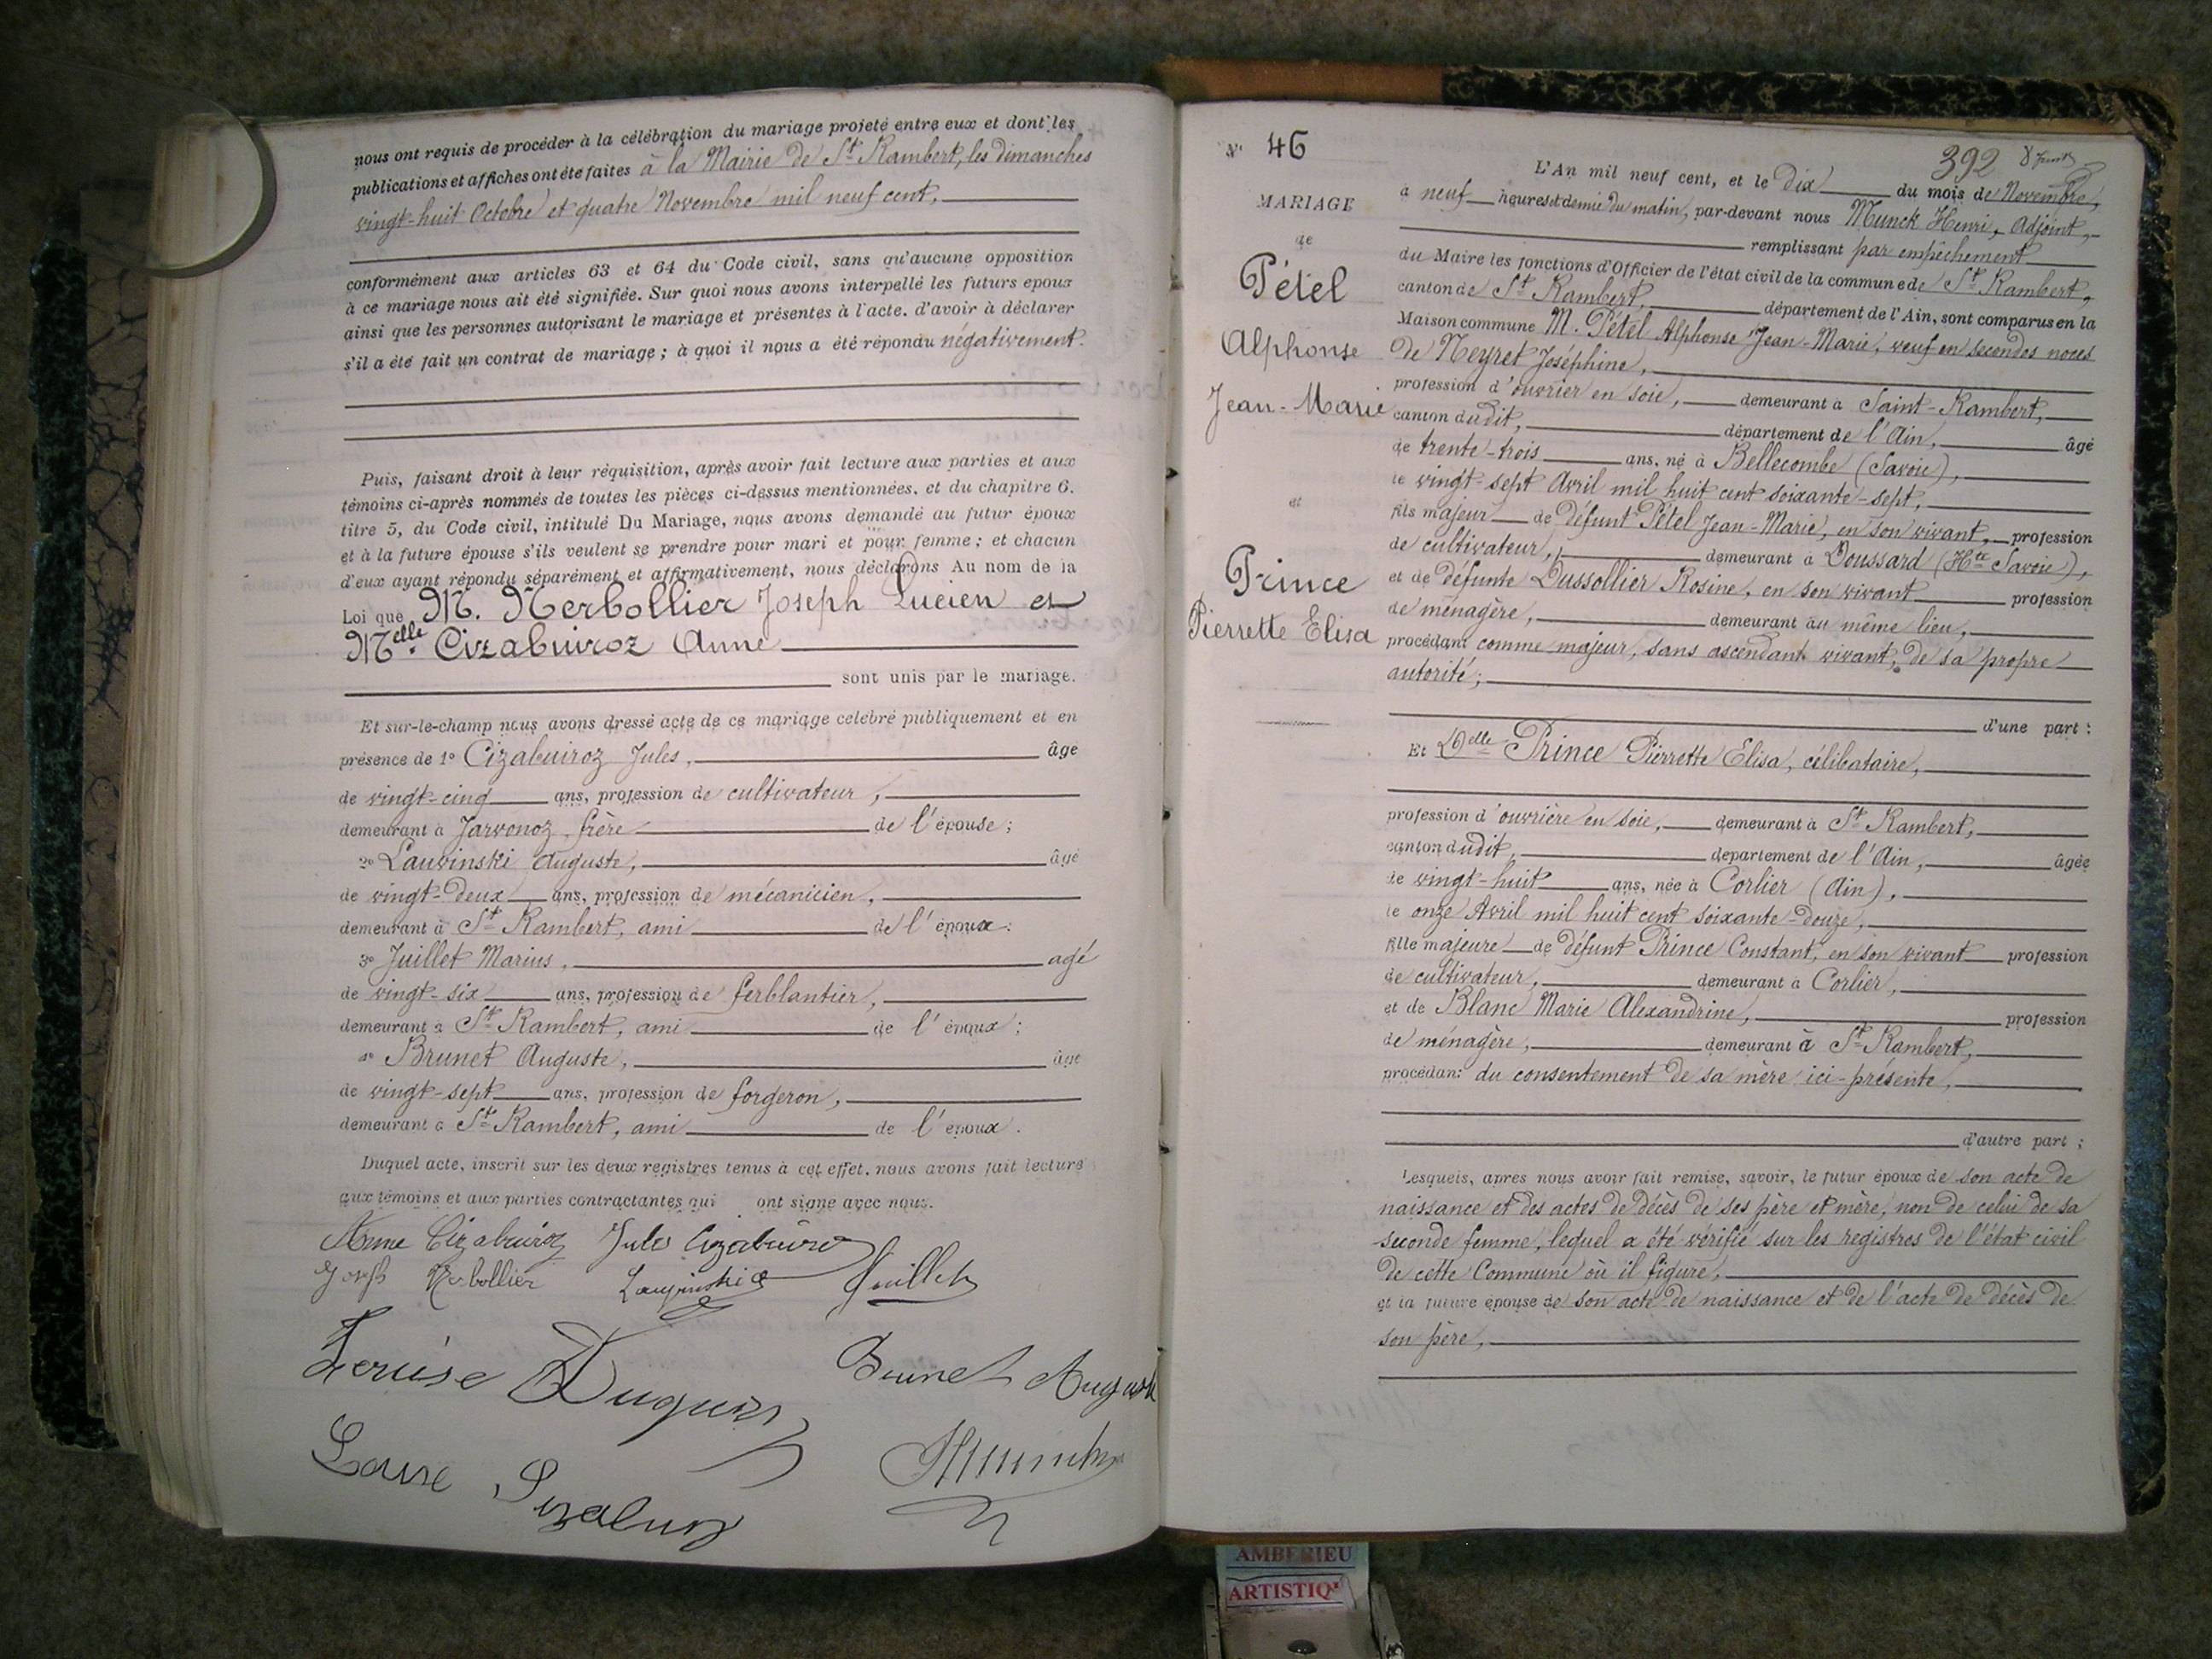 nous ont requis de procéder à la célébration du mariage projeté entre eux et dont les
publications et affiches ont été faites à la Mairie de St Rambert, les dimanches
vingt-huit Octobre et quatre Novembre mil neuf cent,
conformément aux articles 63 et 64 du Code civil, sans qu'aucune opposition
à ce mariage nous ait été signifiée. Sur quoi nous avons interpellé les futurs époux
ainsi que les personnes autorisant le mariage et présentes à l'acte, d'avoir à déclarer
s'il a été fait un contrat de mariage ; à quoi il nous a été répondu négativement.
Puis, faisant droit à leur réquisition, après avoir fait lecture aux parties et aux
témoins ci-après nommés de toutes les pièces ci-dessus mentionnées, et du chapitre 6.
titre 5, du Code civil, intitulé Du Mariage, nous avons demandé au futur époux
et à la future épouse s'ils veulent se prendre pour mari et pour femme ; et chacun
d'eux ayant répondu séparément et affirmativement, nous déclarons Au nom de la
Loi que M. Nerbollier Joseph Lucien et
Melle Cizabuiroz Anne
sont unis par le mariage.
Et sur-le-champ nous avons dressé acte de ce mariage célébré publiquement et en
présence de 1° Cizabuiroz Jules, âgé
de vingt-cinq ans, profession de cultivateur,
demeurant à Jarvonoz, frère de l'épouse ;
2° Lauvinski Auguste, âgé
de vingt-deux ans, profession de mécanicien,
demeurant à St Rambert, ami de l'époux ;
3° Juillet Marius, agé
de vingt-six ans, profession de ferblantier,
demeurant à St Rambert, ami de l'époux ;
4° Brunet Auguste, âgé
de vingt-sept ans, profession de forgeron,
demeurant à St Rambert, ami de l'époux.
Duquel acte, inscrit sur les deux registres tenus à cet effet, nous avons fait lecture
aux témoins et aux parties contractantes qui ont signé avec nous.
Anne Cizabuiroz Jules Cizabuiro
Joseph Nerbollier Juillet
Brunet August
N° 46
MARIAGE
de
Pétel
Alphonse
Jean-Marie
et
Prince
Pierrette Elisa
392
L'An mil neuf cent, et le dix du mois de Novembre,
à neuf heures et demie du matin, par-devant nous Munck Henri, Adjoint,
remplissant par empêchement
du Maire les fonctions d'Officier de l'état civil de la commune de St Rambert,
canton de St Rambert, département de l'Ain, sont comparus en la
Maison commune M. Pétel Alphonse Jean-Marie, veuf en secondes noces
de Neyret Joséphine,
profession d'ouvrier en soie, demeurant à Saint-Rambert,
canton dudit, département de l'Ain, âgé
de trente-trois ans, né à Bellecombe (Savoie),
le vingt-sept Avril mil huit cent soixante-sept,
fils majeur de défunt Pétel Jean-Marie, en son vivant, profession
de cultivateur, demeurant à Doussard (Hte Savoie),
et de défunte Dussollier Rosine, en son vivant profession
de ménagère, demeurant au même lieu,
procédant comme majeur, sans ascendant vivant, de sa propre
autorité ;
d'une part :
Et Delle Prince Pierrette Elisa, célibataire,
profession d'ouvrière en soie, demeurant à St Rambert,
canton dudit, département de l'Ain, âgée
de vingt-huit ans, née à Corlier (Ain),
le onze Avril mil huit cent soixante-douze,
fille majeure de défunt Prince Constant, en son vivant profession
de cultivateur, demeurant à Corlier,
et de Blanc Marie Alexandrine, profession
de ménagère, demeurant à St Rambert,
procédant du consentement de sa mère ici-présente,
d'autre part ;
Lesquels, après nous avoir fait remise, savoir, le futur époux de son acte de
naissance et des actes de décès de ses père et mère, non de celui de sa
seconde femme, lequel a été vérifié sur les registres de l'état civil
de cette Commune où il figure,
et la future épouse de son acte de naissance et de l'acte de décès de
son père,
AMBERIEU
ARTISTIQ